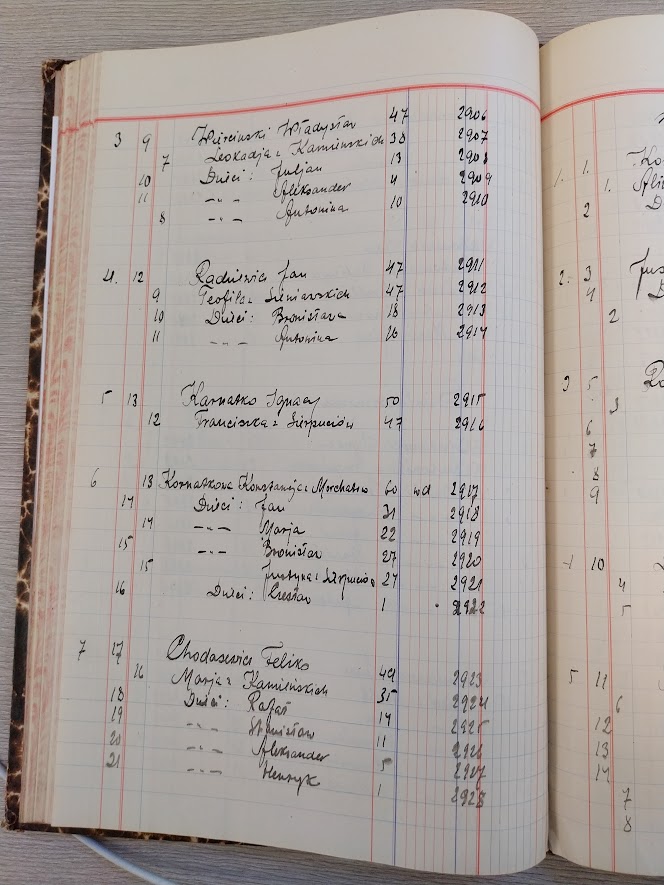 3 9 Wierciński Władysław 47 2906
7 Leokadja z Kamińskich 38 2907
10 Dzieci: Juljan 13 2908
11 -„- Aleksander 4 2909
8 -„- Antonina 10 2910
4. 12 Radziewicz Jan 47 2911
9 Teofila z Sieniawskich 47 2912
10 Dzieci: Bronisława 18 2913
11 -„- Antonina 16 2914
5 13 Karnatko Ignacy 50 2915
12 Franciszka z Sierpuciów 47 2916
6 13 Kornatkowa Konstancja z 60 wd 2917
14 Dzieci: Jan 31 2918
14 -„- Marja 22 2919
15 -„- Bronisław 27 2920
15 Justyna z Sierpuciów 27 2921
16 Dzieci: Czesław 1 2922
7 17 Chodasewicz Feliks 49 2923
16 Marja z Kamińskich 35 2924
18 Dzieci: Rafał 14 2925
19 -„- Stanisław 11 2926
20 -„- Aleksander 5 2927
21 -„- Henryk 1 2928
1. 1.
1.
2
2. 3
4
2
3 5
3
6
7
8
9
4 10
4
5
5 11
6
12
13
14
7
8